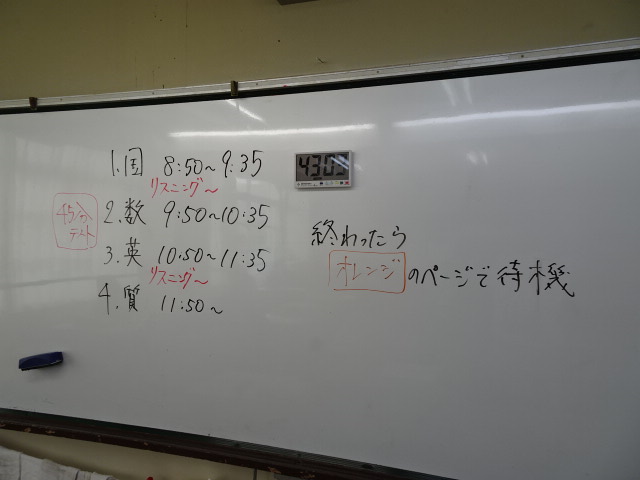 1.国 8:50〜9:35
リスニング〜
45分
テスト
2.数 9:50〜10:35
3.英 10:50〜11:35
リスニング〜
4.質 11:50〜
4303
終わったら
オレンジのページで待機